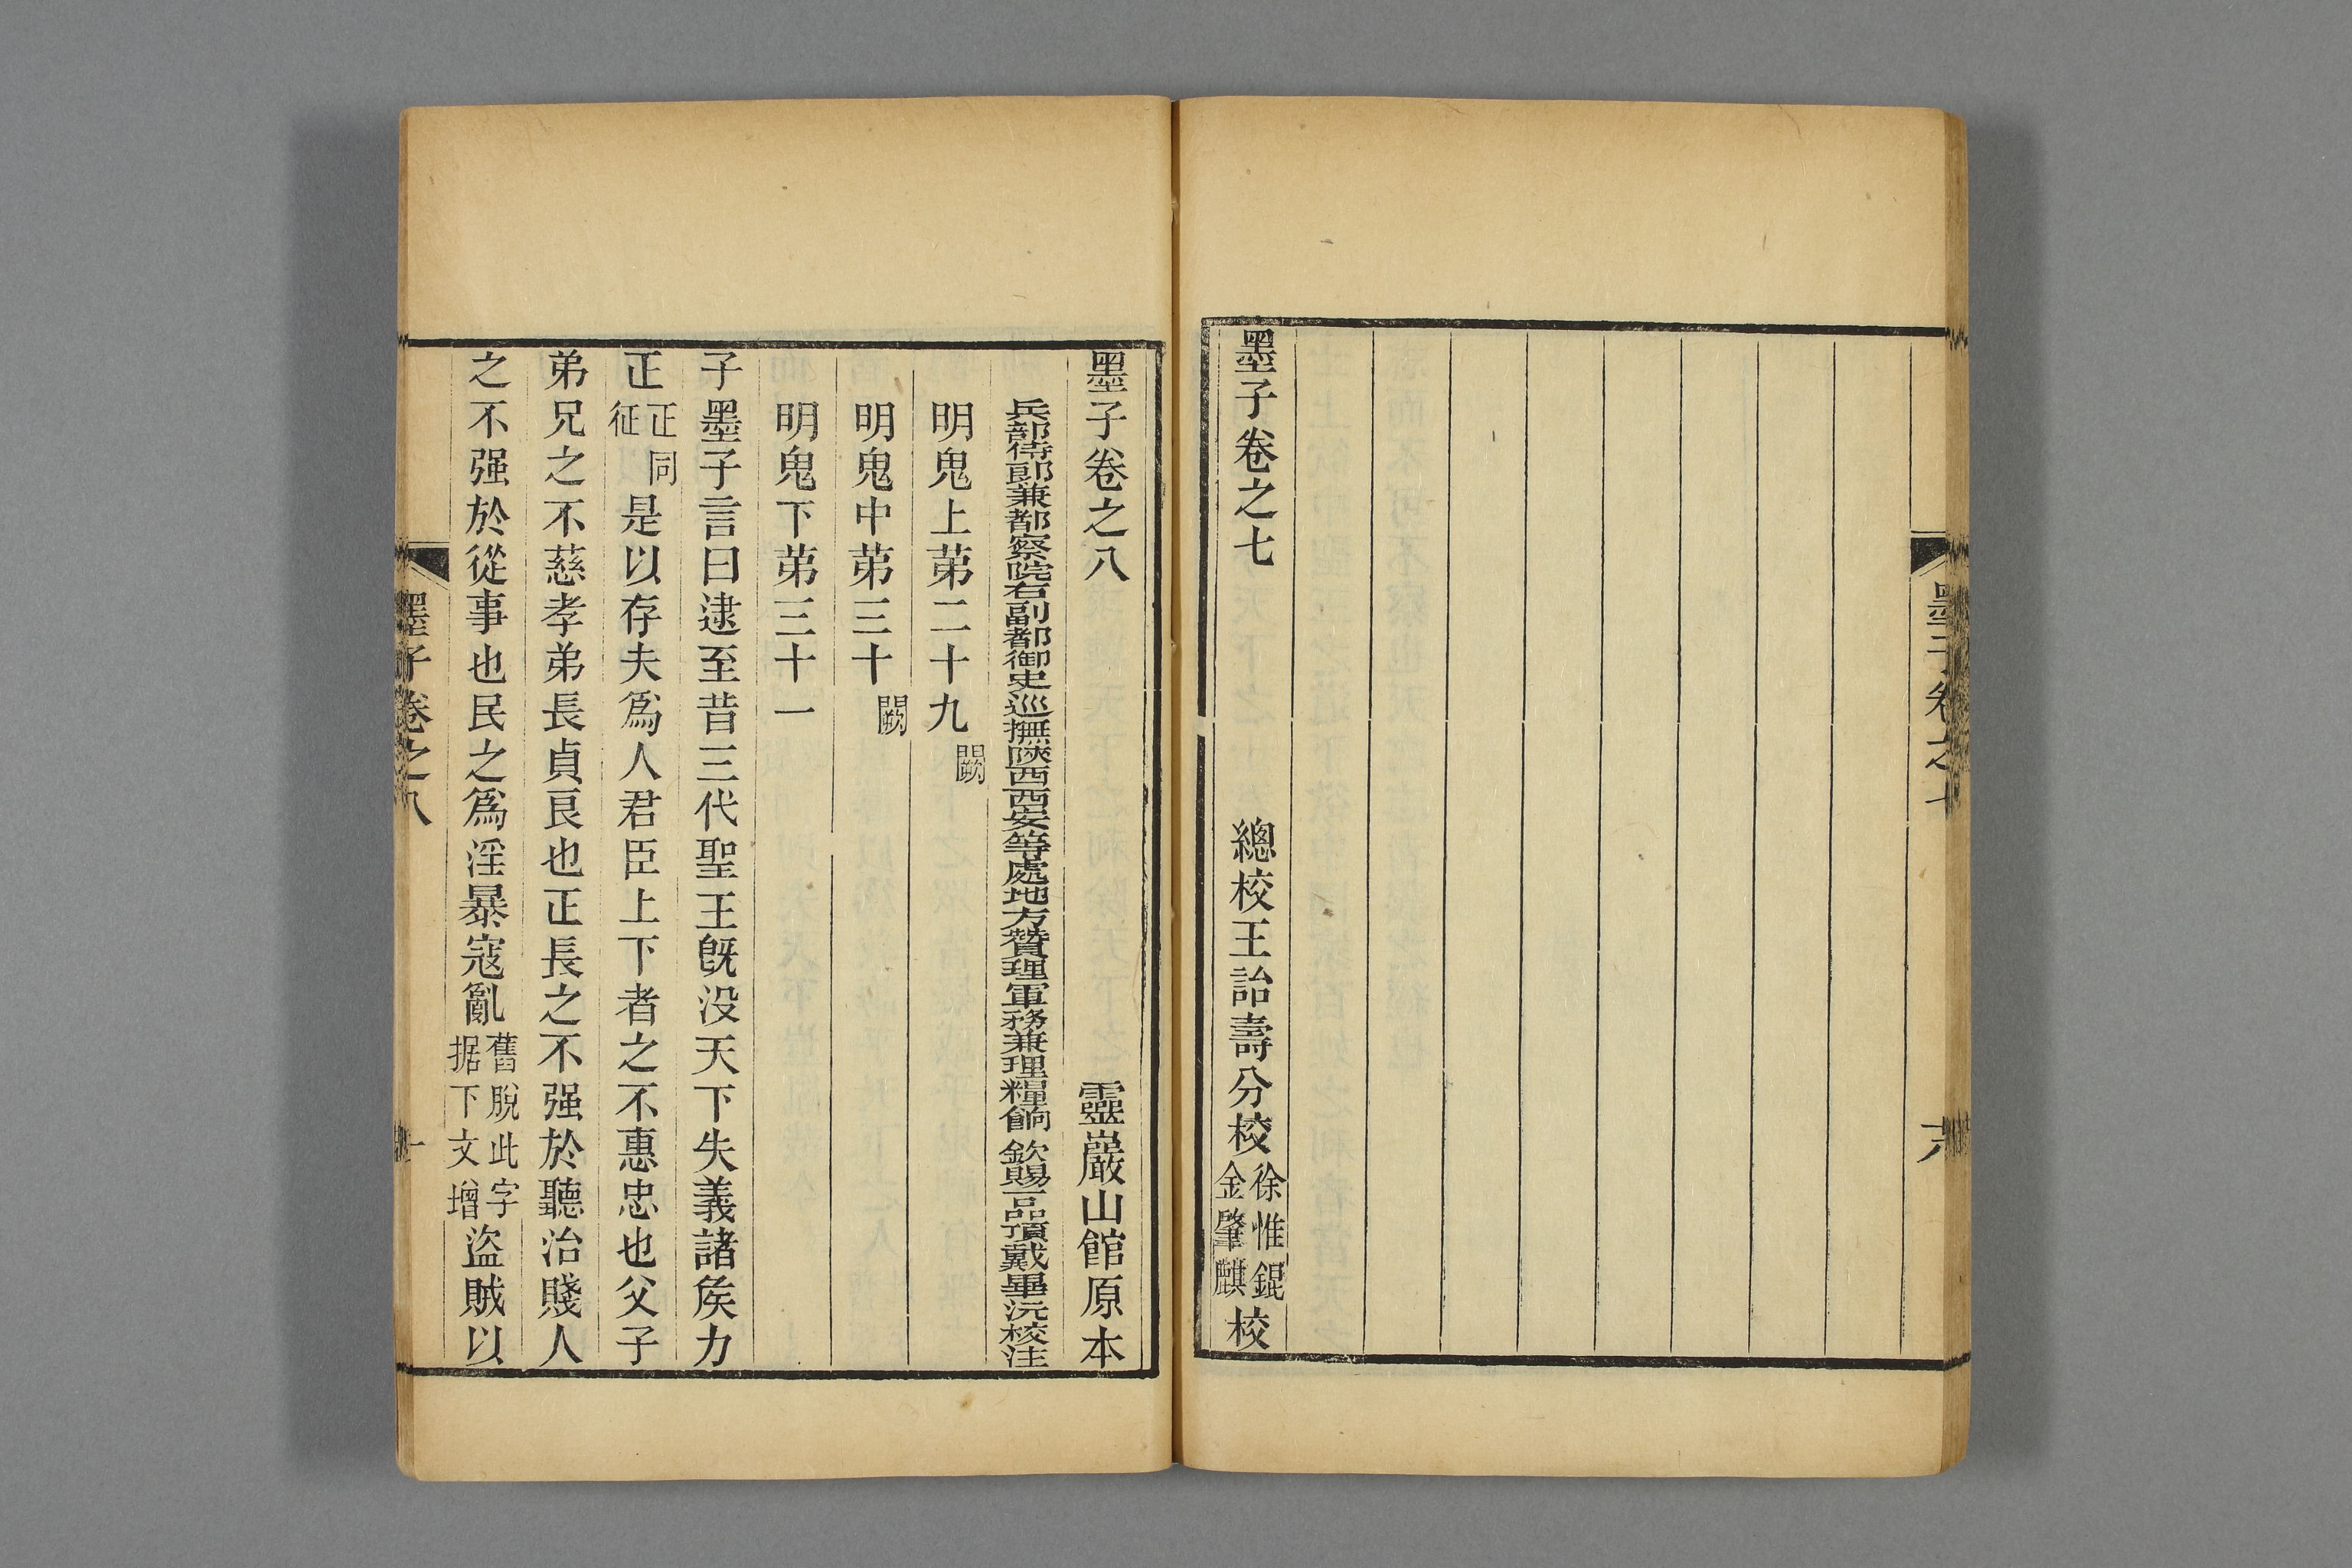 墨子卷之七
十八
墨子卷之七
總校王詒壽分校徐惟錕金肇麒校
墨子卷之八
靈巖山館原本
兵部侍郎兼都察院右副都御史巡撫陝西西安等處地方贊理軍務兼理糧餉 欽賜一品頂戴畢沅校注
明鬼上苐二十九闕
明鬼中苐三十闕
明鬼下苐三十一
子墨子言曰逮至昔三代聖王旣没天下失義諸矦力
正正同征是以存夫爲人君臣上下者之不惠忠也父子
弟兄之不慈孝弟長貞良也正長之不强於聽治賤人
之不强於從事也民之爲淫暴寇亂舊脫此字据下文增盜賊以
墨子卷之八
一